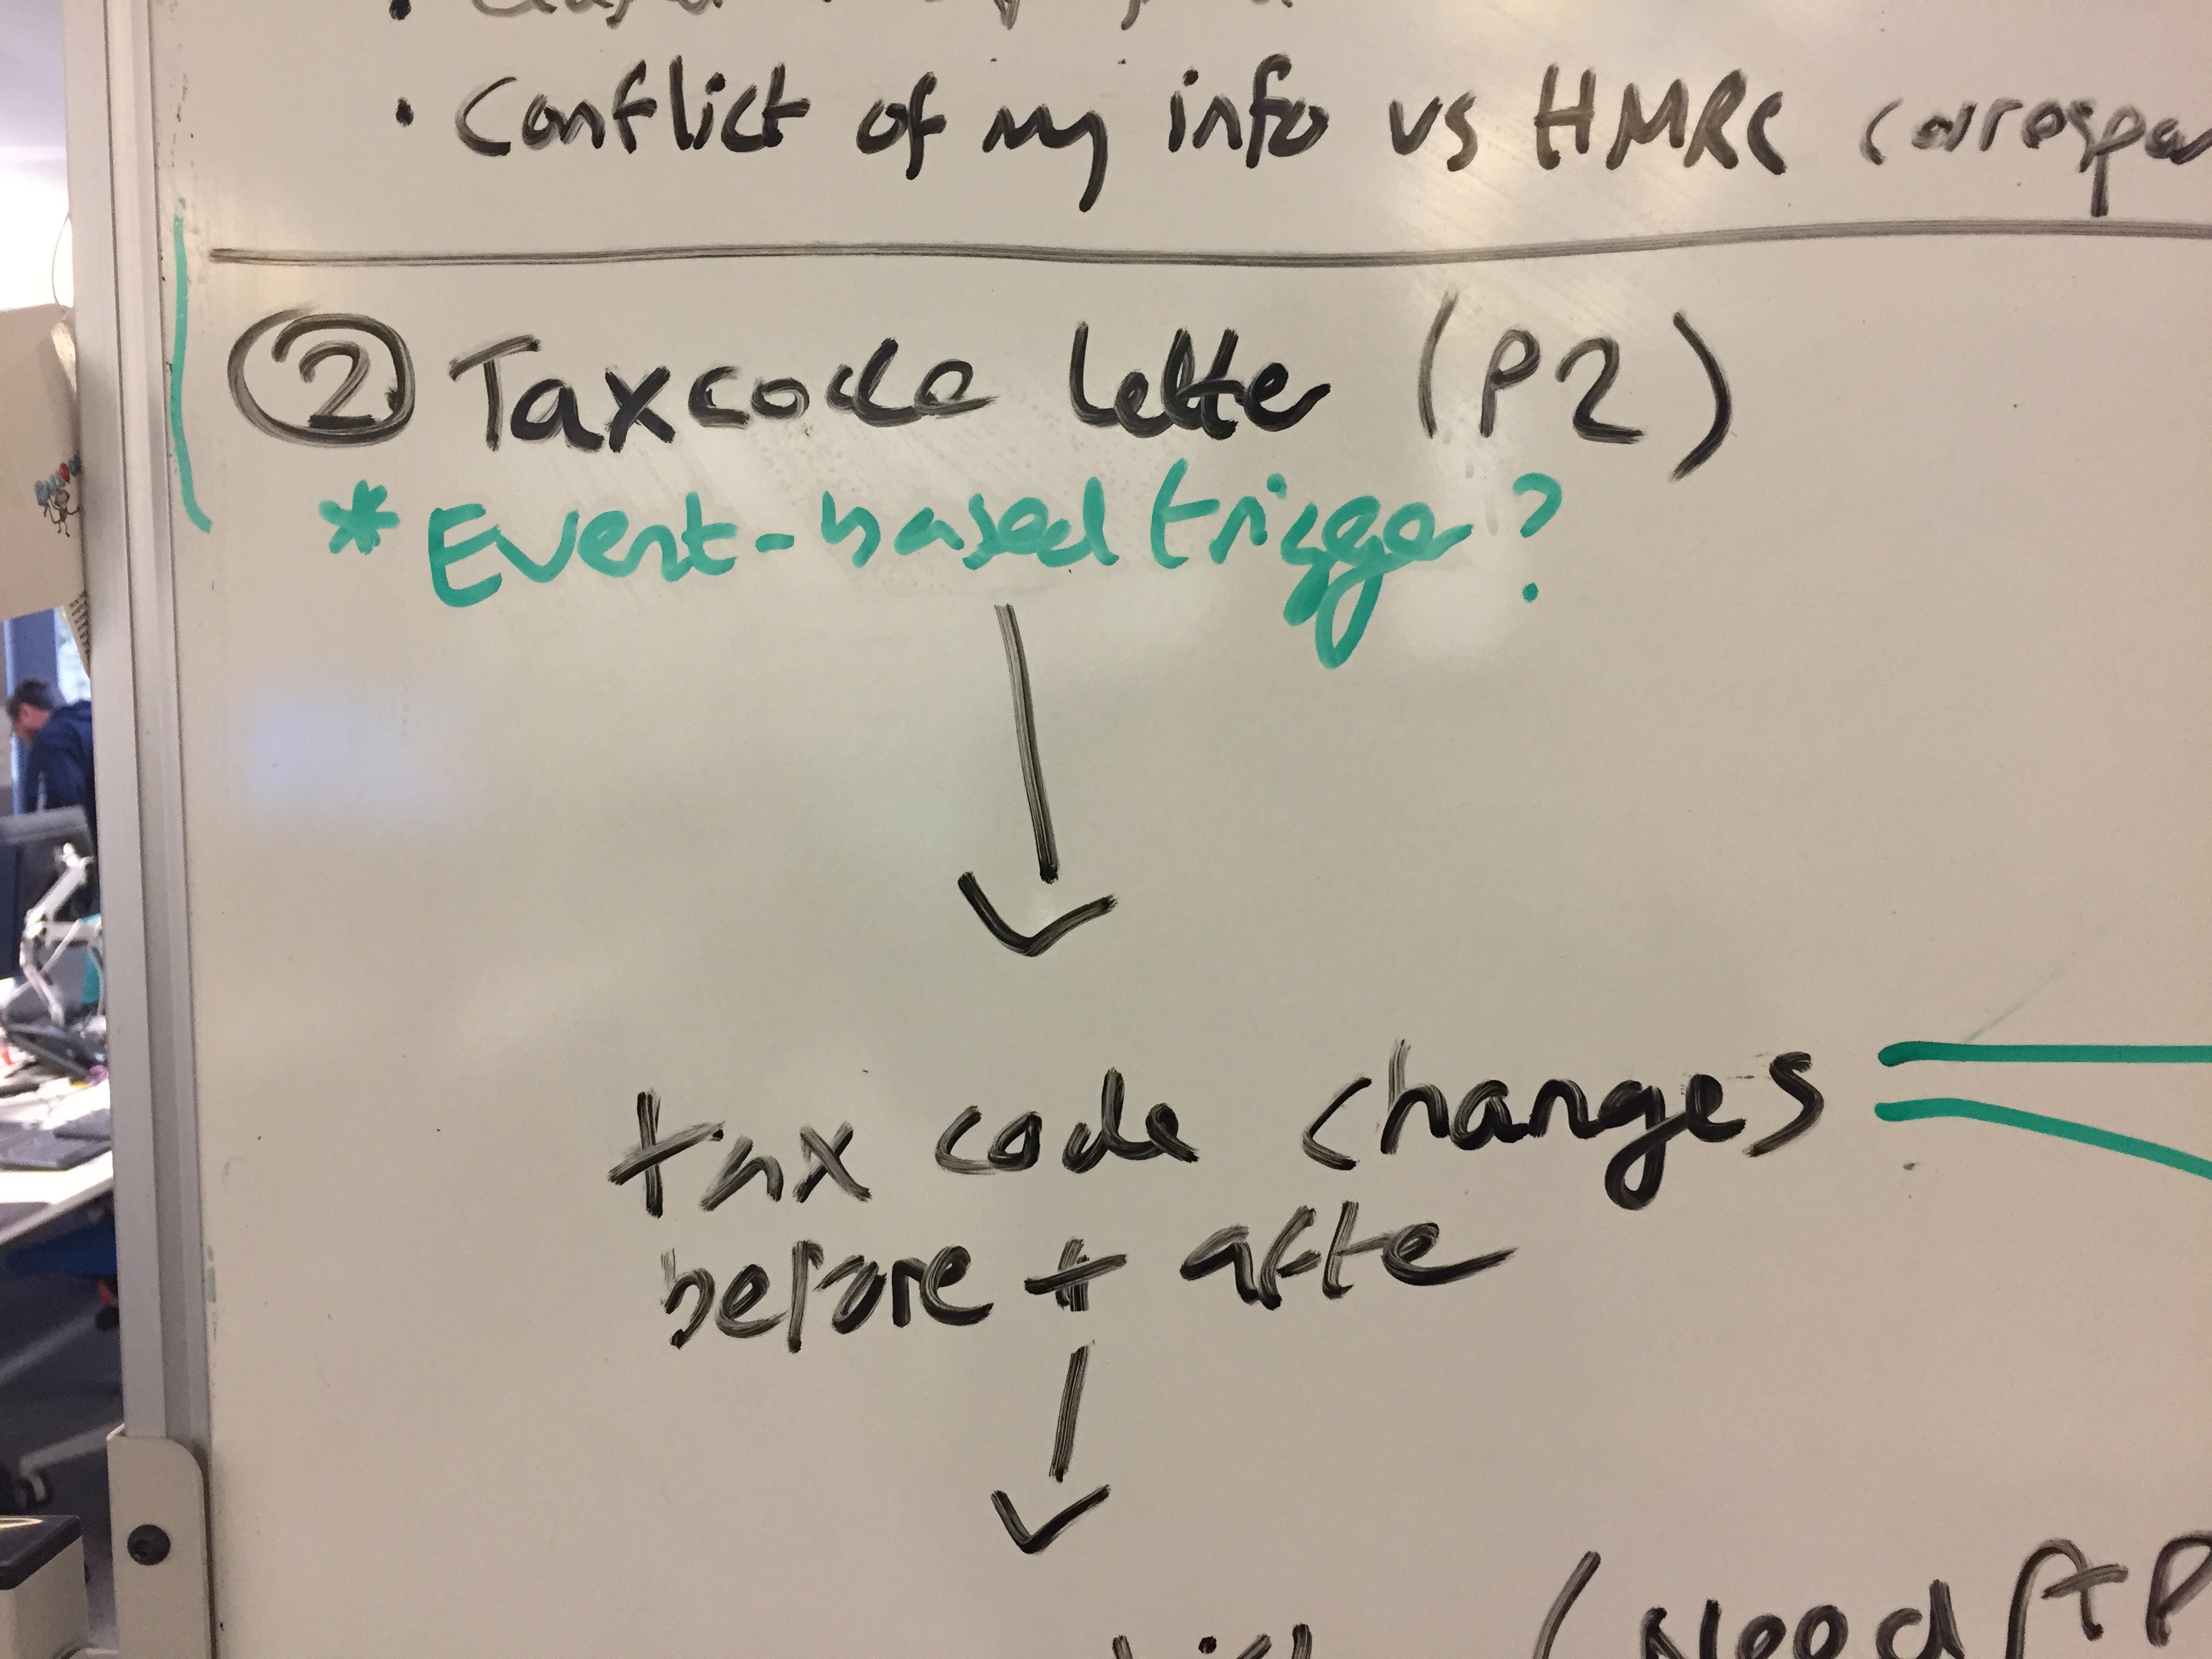 • Conflict of my info vs HMRC
② Taxcode letter (P2)
* Event-based trigger?
tax code changes
before + afte
(Need